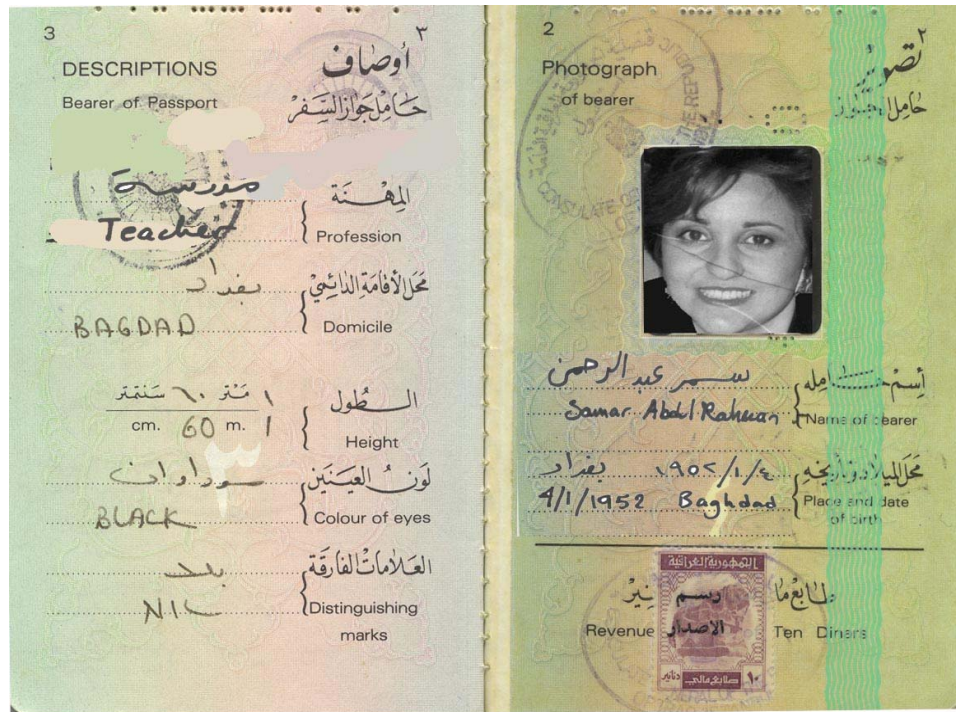 3
٣
DESCRIPTIONS
أوصاف
Bearer of Passport
حامل جواز السفر
مدرسة
المهنة
Teacher
Profession
بغداد
محل الأقامة الدائمي
BAGDAD
Domicile
١ متر ٦٠ سنتمتر
الطول
cm. 60 m. 1
Height
سوداوان
لون العينين
BLACK
Colour of eyes
العلامات الفارقة
NIL
Distinguishing
marks
2
٢
Photograph
تصوير
of bearer
حامل الجواز
CONSULATE OF THE REPUBLIC
سمر عبد الرحمن
أسم حامله
Samar Abdul Rahman
Name of bearer
بغداد ١٩٥٢/١/٤
محل الميلاد وتأريخه
4/1/1952 Baghdad
Place and date
of birth
الجمهورية العراقية
رسم
طابع ما
Revenue
الاصدار
Ten Dinars
دنانير
١٠